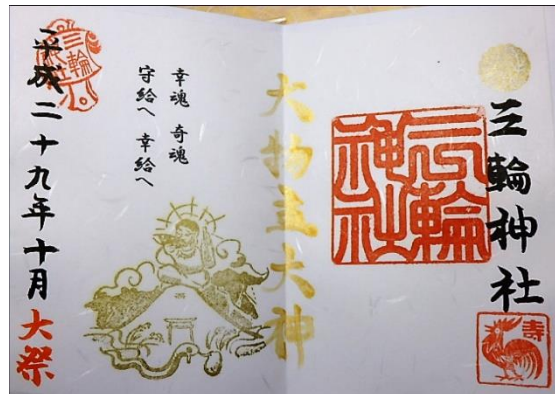 三輪神社
三輪神社
壽
大物主大神
幸魂 奇魂
守給へ 幸給へ
平成二十九年十月大祭
三輪